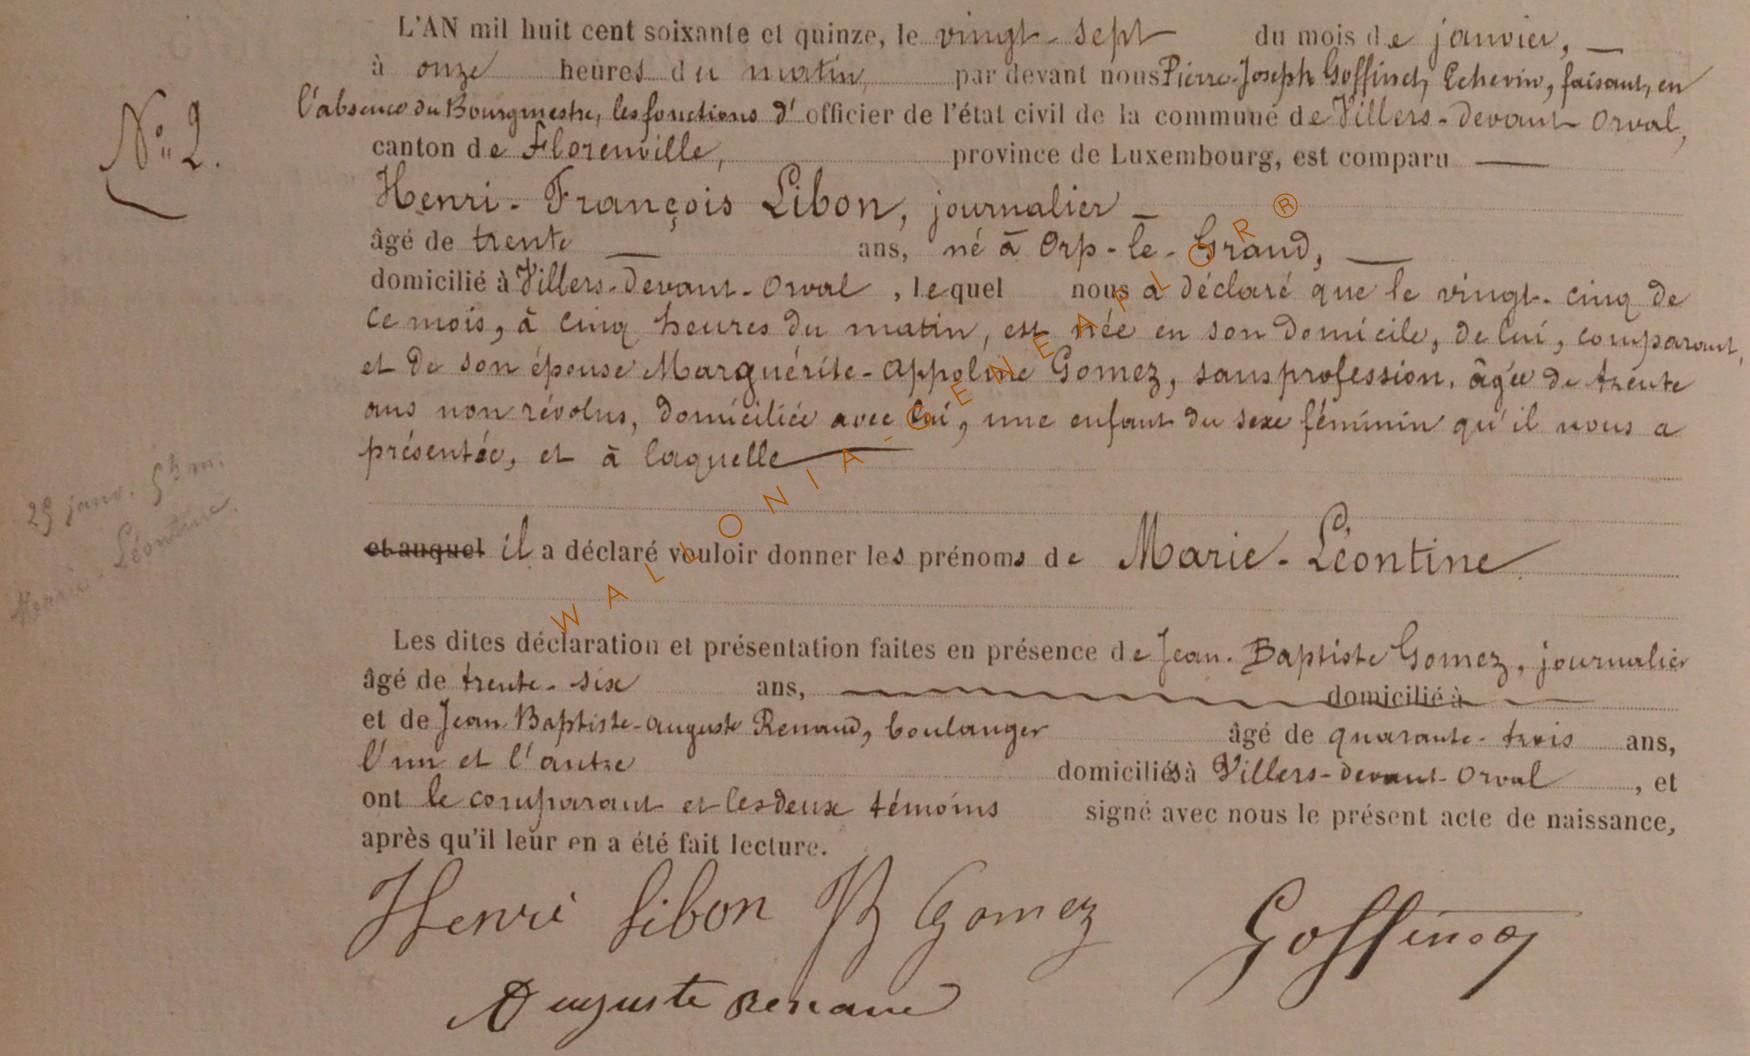 L'AN mil huit cent soixante et quinze, le vingt-sept du mois de janvier,
à onze heures du matin, par devant nous Pierre-Joseph Goffinet, Echevin, faisant, en
l'absence du Bourgmestre, les fonctions d'officier de l'état civil de la commune de Villers-devant-Orval,
canton de Florenville, province de Luxembourg, est comparu
N° 2.
Henri-François Libon, journalier
âgé de trente ans, né à Orp-le-Grand,
domicilié à Villers-devant-Orval, lequel nous a déclaré que le vingt-cinq de
ce mois, à cinq heures du matin, est née en son domicile, de lui, comparant,
et de son épouse Marguérite-Appoline Gomez, sans profession, âgée de trente
ans non révolus, domiciliée avec lui, une enfant du sexe féminin qu'il nous a
présentée, et à laquelle
25 janv. 5h m.
Léontine
et auquel il a déclaré vouloir donner les prénoms de Marie-Léontine
Les dites déclaration et présentation faites en présence de Jean-Baptiste Gomez, journalier
âgé de trente-six ans, domicilié à
et de Jean Baptiste-Auguste Renaud, boulanger âgé de quarante-trois ans,
l'un et l'autre domiciliés à Villers-devant-Orval, et
ont le comparant et les deux témoins signé avec nous le présent acte de naissance,
après qu'il leur en a été fait lecture.
Henri Libon JB Gomez Goffinet
Auguste Renaud
WALLONIA-GENEAFLOR®